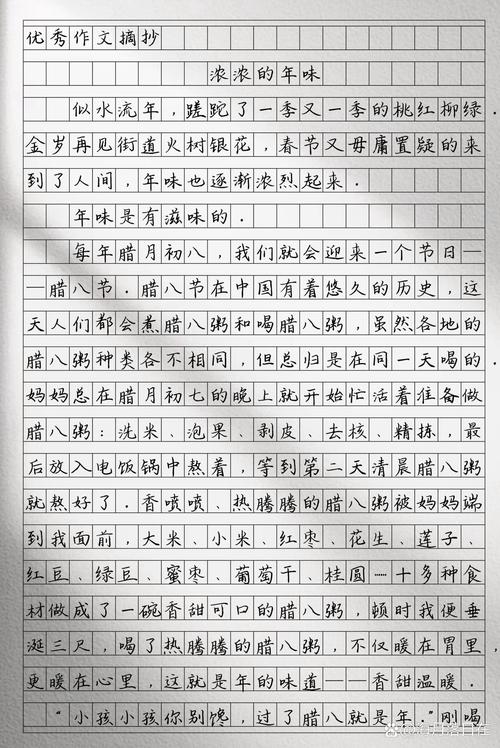 优秀作文摘抄
浓浓的年味
似水流年，蹉跎了一季又一季的桃红柳绿．
金岁再见街道火树银花，春节又毋庸置疑的来
到了人间，年味也逐渐浓烈起来．
年味是有滋味的．
每年腊月初八，我们就会迎来一个节日—
—腊八节．腊八节在中国有着悠久的历史，这
天人们都会煮腊八粥和喝腊八粥，虽然各地的
腊八粥种类各不相同，但总归是在同一天喝的．
妈妈总在腊月初七的晚上就开始忙活着准备做
腊八粥：洗米、泡果、剥皮、去核、精拣，最
后放入电饭锅中熬着，等到第二天清晨腊八粥
就熬好了．香喷喷、热腾腾的腊八粥被妈妈端
到我面前，大米、小米、红枣、花生、莲子、
红豆、绿豆、蜜枣、葡萄干、桂圆┈十多种食
材做成了一碗香甜可口的腊八粥，顿时我便垂
涎三尺，喝了热腾腾的腊八粥，不仅暖在胃里，
更暖在心里，这就是年的味道——香甜温暖．
“小孩小孩你别馋，过了腊八就是年．”刚喝